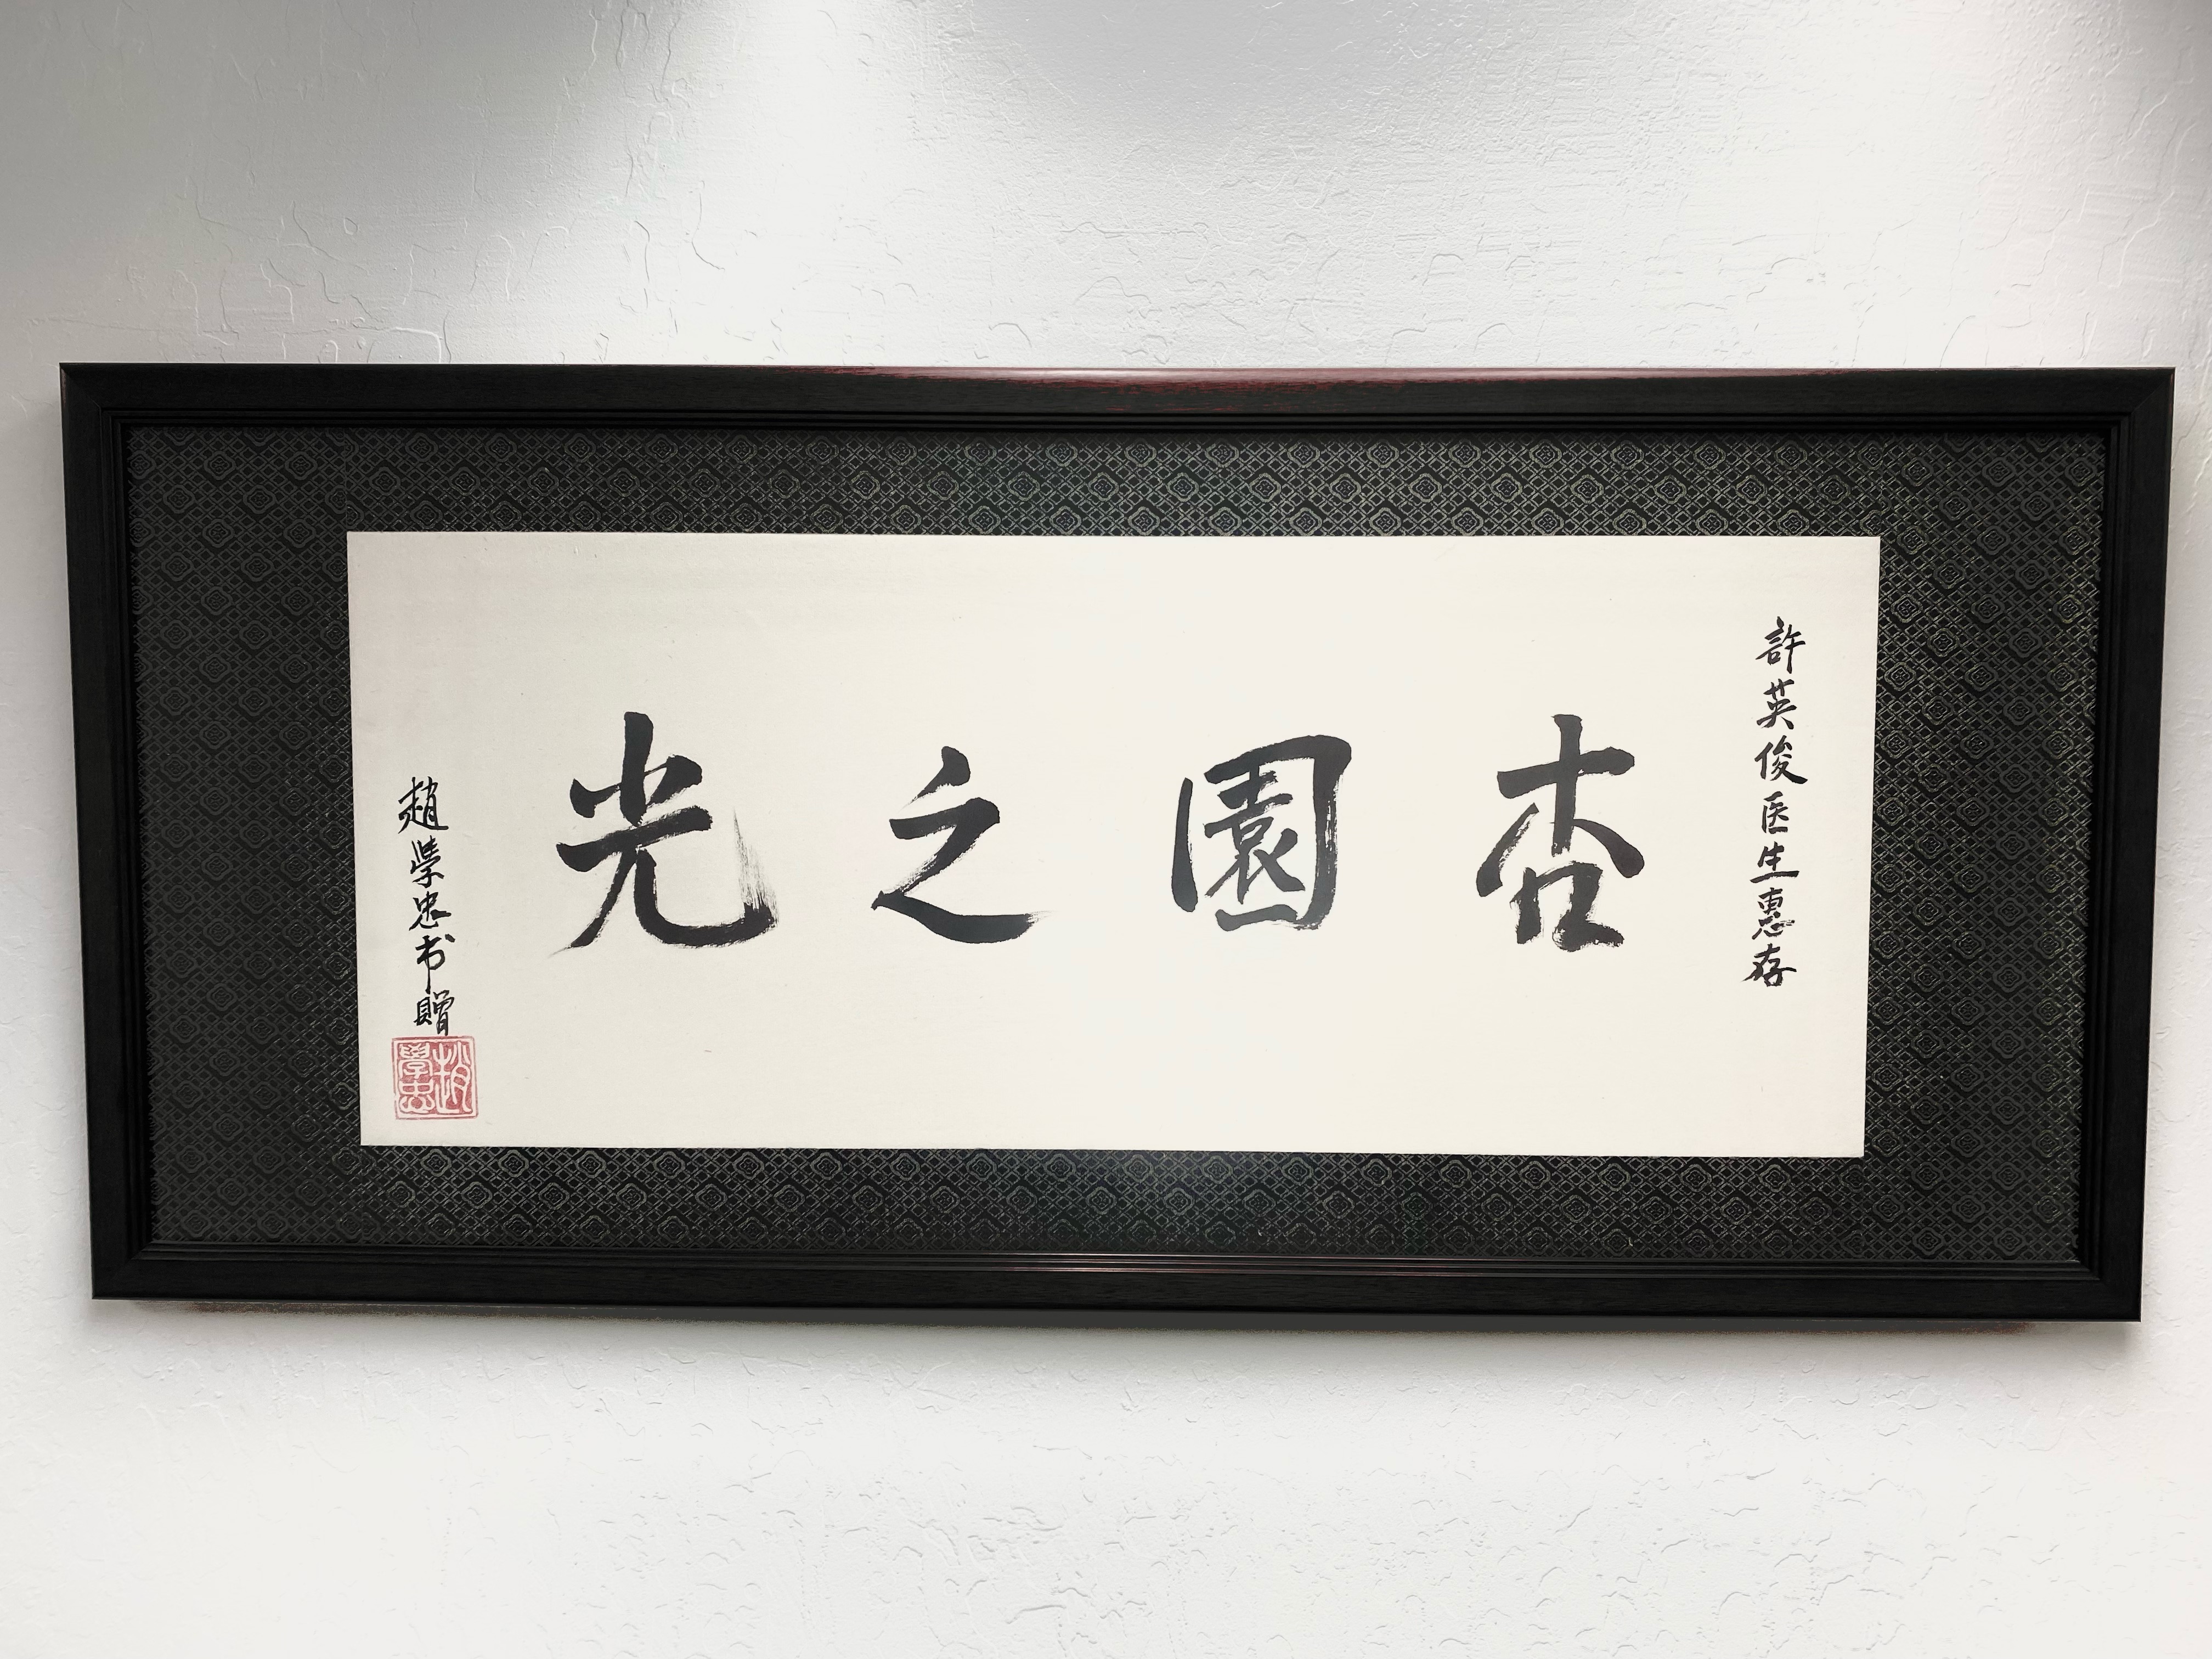 許英俊医生惠存
杏園之光
趙學忠书贈
趙學忠